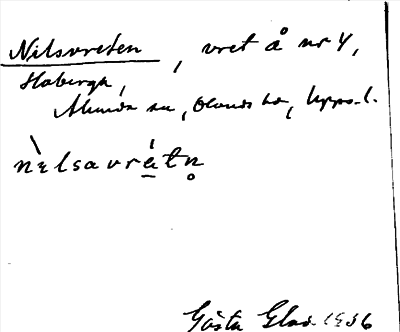 Nilsvreten, vret å nr 4,
Haberga,
Alunda sn, Olands hd, Upps. l.
nìlsavrétn̥
Gösta Glad 1936